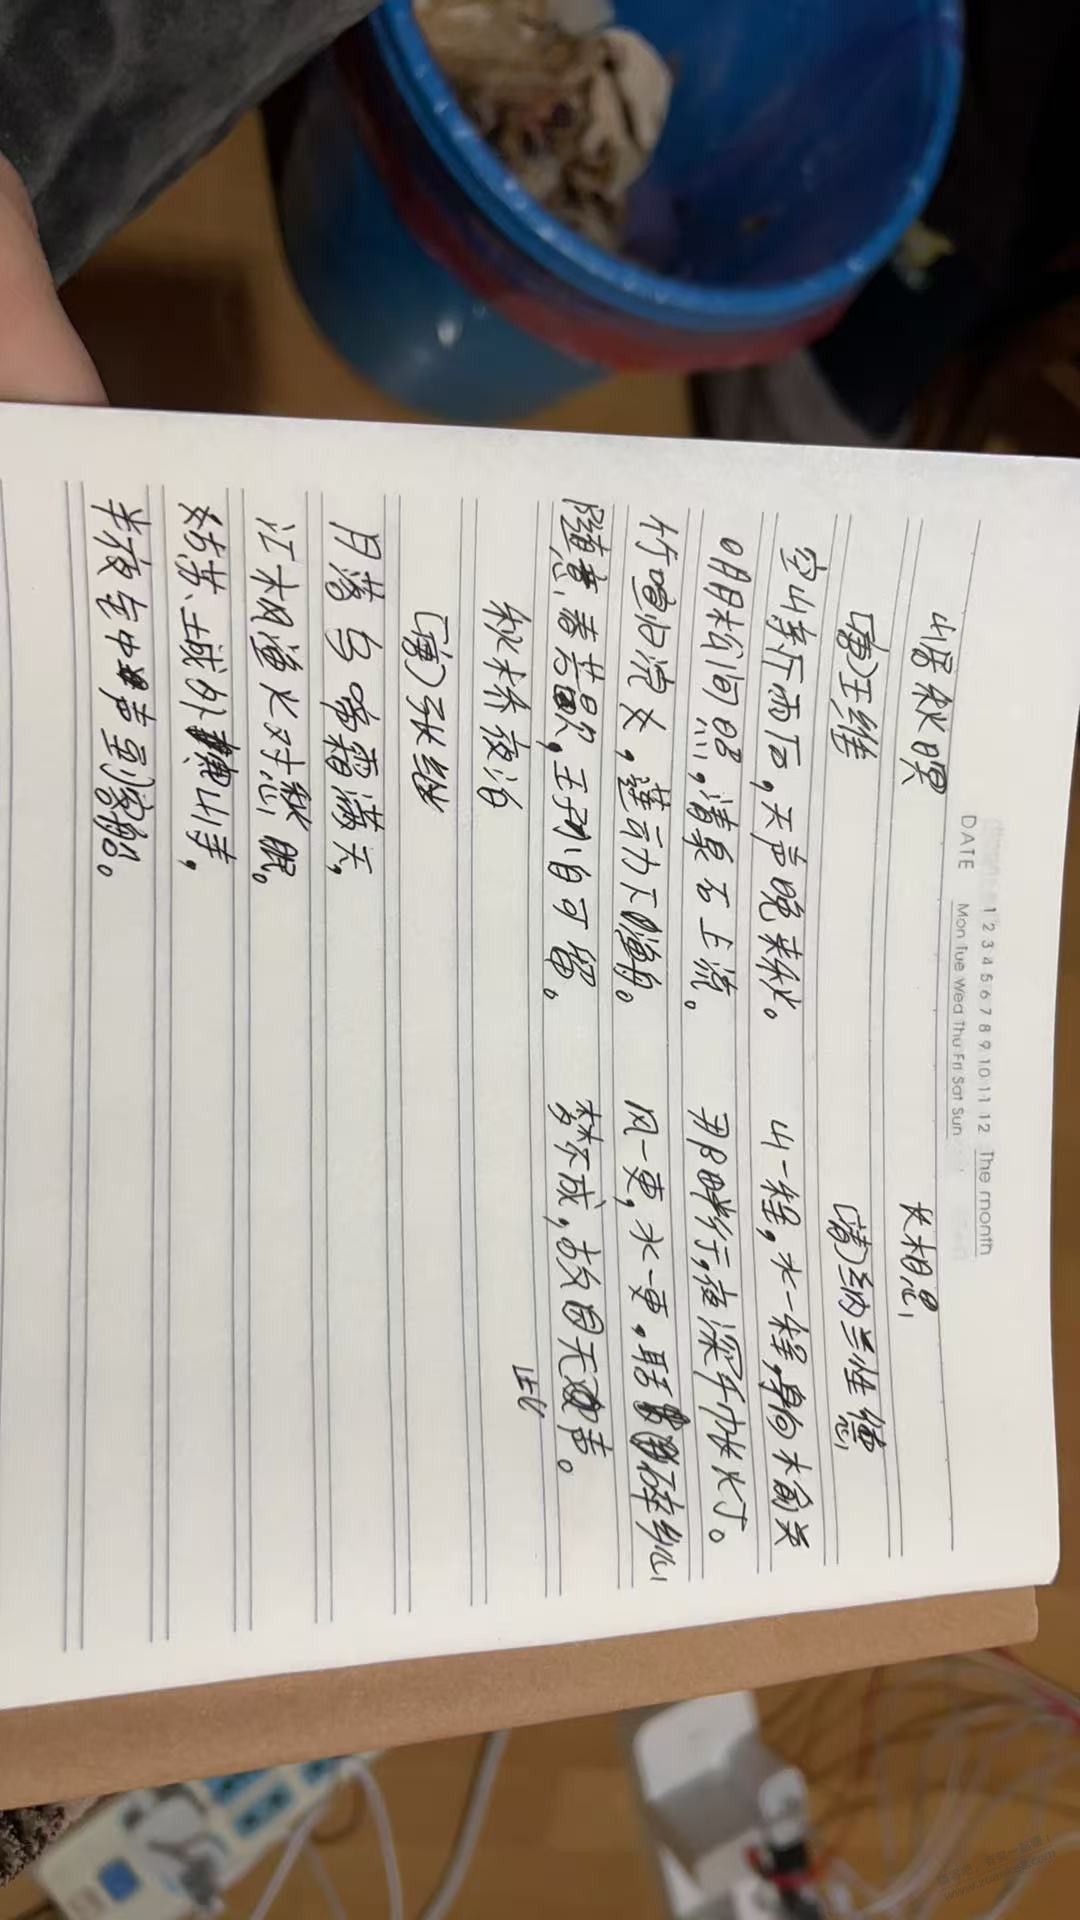 1 2 3 4 5 6 7 8 9 10 11 12 The month
DATE Mon Tue Wed Thu Fri Sat Sun
山居秋暝
(唐)王维
空山新雨后,天声晚来秋。
明月松间照,清泉石上流。
竹喧归浣女,莲动下渔舟。
随意春芳歇,王孙自可留。
长相思
(清)纳兰性德
山一程,水一程,身向木俞关
那畔行,夜深千帐灯。
风一更,水一更,聒碎乡心
梦不成,故园无声。
此
枫桥夜泊
(唐)张继
月落乌啼霜满天,
江枫渔火对愁眠。
姑苏城外寒山寺,
半夜钟声到客船。